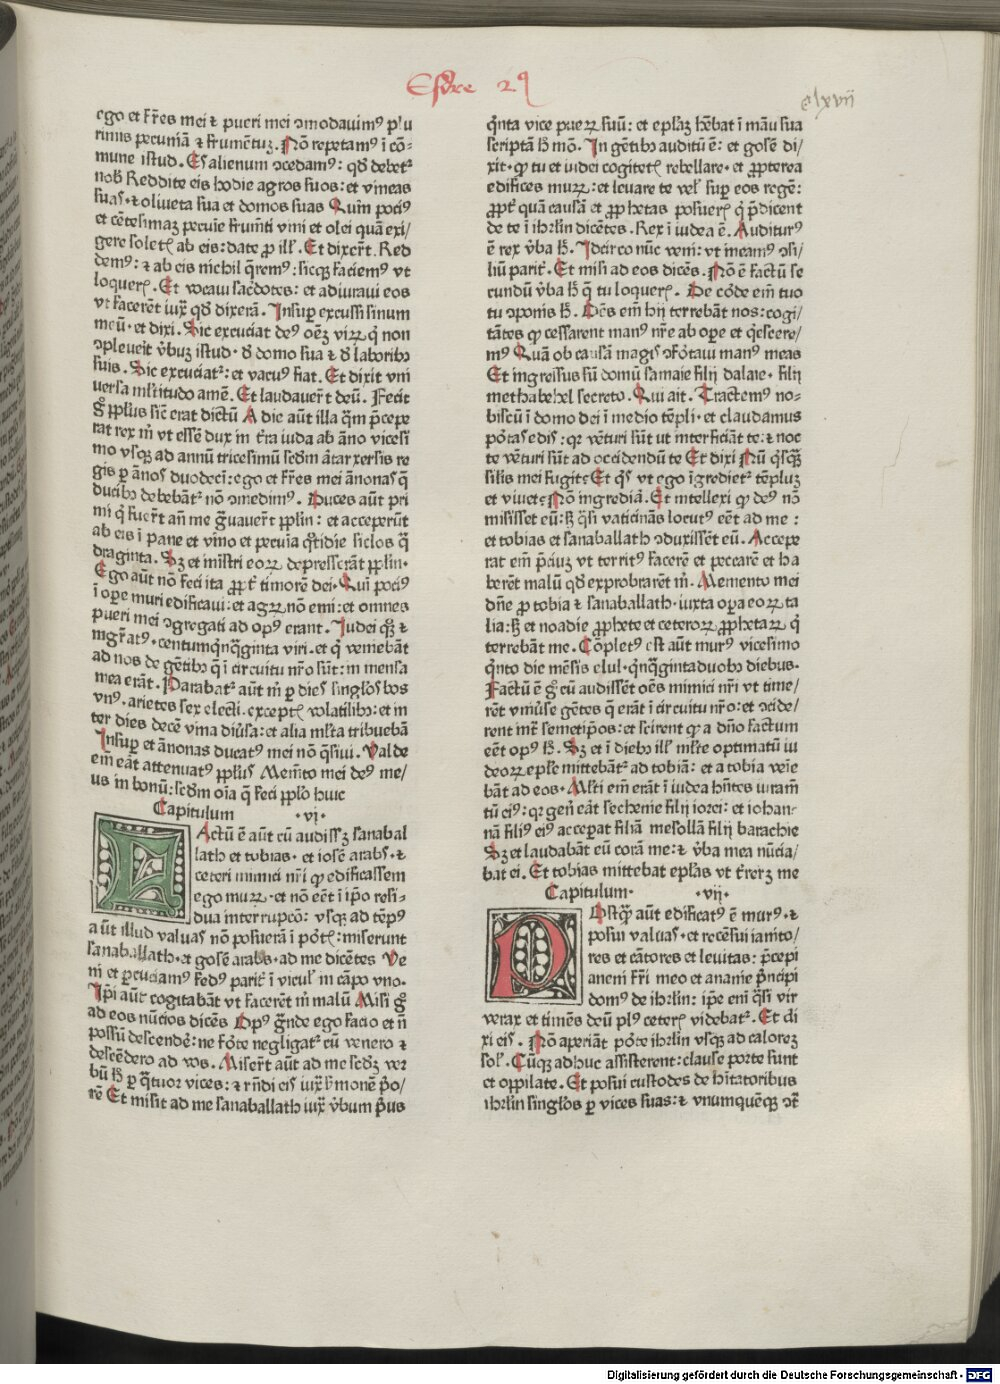 Esdre 2ꝰ
clxvij
ego et fr̄es mei ⁊ pueri mei ↄmodauimꝰ plu
rimis pecuniā ⁊ frumētuꝫ. Nō repetamꝰ ī cō⸗
mune istud. Es alienum ↄcedamꝰ: qd̄ debet᷑
nob̄ Reddite eis hodie agros suos: et vineas
suas· ⁊ oliueta sua et domos suas Quin potiꝰ
et cētesimaꝫ pecuīe frum̄ti vini et olei quā exi/
gere soletꝭ ab eis: date ꝓ ill̓. Et dixer̄t. Red
demꝰ: ⁊ ab eis nichil q̄remꝰ: sicqꝫ faciemꝰ vt
loquerꝭ. Et vocaui sac̄dotes: et adiuraui eos
vt facerēt iuxͣ qd̄ dixerā. Insuꝑ excussi sinum
meū· et dixi. Sic excuciat deꝰ oēꝫ viꝝ qͥ non
ↄpleueit v̄buꝫ istud· ð domo sua ⁊ ð laboribꝰ
suis. Sic excuciat᷑: et vacuꝰ fiat. Et dixit vni
uersa ml̓titudo amē. Et laudauer̄t deū. Fecit
gͦ ppl̓us sic̄ erat dictū A die aūt illa qͣm p̄cepe
rat rex m̄ vt essē dux in t̄ra iuda ab āno vicesi
mo vsqꝫ ad annū tricesimū scd̄m ātarxersis re
gis ꝑ ānos duodecī: ego et fr̄es mei ānonas q̄
ducibꝰ debebāt᷑ nō ↄmedimꝰ. Duces aūt pri
mi qͥ fuer̄t an̄ me gͣuauer̄t ppl̓m: et acceperūt
ab eis ī pane et vino et pecuīa qͦtidie siclos qͣ
draginta. Sꝫ et mīstri eoꝝ depresserāt ppl̓m·
Ego aūt nō feci ita ꝓpt̄ timorē dei· Quī potiꝰ
ī oꝑe muri edificaui: et agꝝ nō emi: et omnes
pueri mei ↄgregati ad opꝰ erant. Iudei qͦꝫ ⁊
mgr̄atꝰ· centumqͥnqͣginta viri· et qͥ veniebāt
ad nos de gētibꝰ q̄ ī circuitu nr̄o sūt: in mensa
mea erāt. Parabat᷑ aūt m̄ ꝑ dies singl̓os bos
vnꝰ· arietes sex electi· exceptꝭ volatilibꝰ: et in
ter dies decē vina diūsa: et alia ml̓ta tribuebā
Insuꝑ et ānonas ducatꝰ mei nō q̄siui. Valde
em̄ eāt attenuatꝰ ppl̓us Mem̄to mei deꝰ me/
us in bonū: scd̄m oīa q̄ feci ppl̓o huic
Capitulum ·vi·
Actū ē aūt cū audissꝫ sanabal
lath et tobias· et iosē arabs· ⁊
ceteri inimici nr̄i ꝙ edificassem
ego muꝝ· et nō eēt ī ip̄o resi⸗
dua interrupcō: vsqꝫ ad tēpꝰ
aūt illud valuas nō posuerā ī pōt̄: miserunt
sanaballath· et gosē arabs· ad me dicētes Ve
ni et ꝑcuciamꝰ fedꝰ parit̄ ī vicul̓ in cāpo vno·
Ip̄i aūt cogitabāt vt facerēt m̄ malū Misi gͦ
ad eos nūcios dicēs Opꝰ gͣnde ego facio et n̄
possū descendē: ne fōte negligat᷑ cū venero ⁊
descēdero ad vos. Miser̄t aūt ad me scd̄ꝫ ver
bū h̄ ꝑ qͣtuor vices: ⁊ rn̄di eis iuxͣ ẜmonē p̄o⸗
rē Et misit ad me sanaballath iuxͣ v̄bum p̄us
qͥnta vice pueꝝ suū: et epl̓aꝫ hēbat ī māu sua
scriptā h̄ mō. In gētibꝰ auditū ē: et gosē di/
xit· ꝙ tu et iudei cogitetꝭ rebellare· et ꝓpterea
edifices muꝝ: et leuare te vel̓ suꝑ eos regē:
ꝓpt̄ quā causā et ꝓphetas posuerꝭ qͥ p̄dicent
de te ī ihrl̓m dicētes. Rex ī iudea ē. Auditurꝰ
ē rex v̄ba h̄. Idcirco nūc veni: vt ineamꝰ ↄsi⸗
liū parit̄. Et misi ad eos dicēs. Nō ē factū se
cundū v̄ba h̄ q̄ tu loquerꝭ. De corde em̄ tuo
tu ↄponis h̄. Oēs em̄ hij terrebāt nos: cogi/
tātes ꝙ cessarent manꝰ nr̄e ab oꝑe et qͥescere/
mꝰ Quā ob causā magis ↄfortaui manꝰ meas
Et ingressus sū domū samaie filij dalaie· filij
methabehel secreto. Qui ait. Tractemꝰ no⸗
biscū ī domo dei ī medio tēpli· et claudamus
portas edis: qr vēturi sūt ut interficiāt te: ⁊ noc
te vēturi sūt ad occidendū te Et dixi Nū qͥsqͣꝫ
silis mei fugit: Et qͥs vt ego īgrediet᷑ tēpluꝫ
et viuet: Nō ingrediā. Et intellexi ꝙ deꝰ nō
misisset eū: sꝫ qͣsi vaticinās locutꝰ eēt ad me:
et tobias et sanaballath ↄduxissēt eū. Accepe
rat em̄ p̄ciuꝫ vt territꝰ facerē et peccarē et ha
berēt malū qd̄ exprobrarēt m̄. Memento mei
dn̄e ꝓ tobia ⁊ sanaballath· iuxta oꝑa eoꝝ ta
lia: sꝫ et noadie ꝓphete et ceteroꝝ ꝓphetaꝝ qͥ
terrebāt me. Cōpletꝰ est aūt murꝰ vicesimo
qͥnto die mēsis elul· qͥnqͣgintaduobꝰ diebus·
Factū ē gͦ cū audissēt oēs inimici nr̄i vt time/
rēt vniūse gētes q̄ erāt ī circuitu nr̄o: et ↄcide/
rent intr̄ semetip̄os: et scirent ꝙ a dn̄o factum
eēt opꝰ h̄. Sꝫ et ī diebꝰ ill̓ ml̓te optimatū iu
deoꝝ epl̓e mittebāt᷑ ad tobiā: et a tobia veīe
bāt ad eos· Ml̓ti em̄ erāt ī iudea hn̄tes iuram̄
tū eiꝰ: qr gen̄ eāt sechenie filij iorei: et iohan⸗
nā filiꝰ eiꝰ acceꝑat filiā mesollā filij barachie
Sꝫ et laudabāt eū corā me: ⁊ v̄ba mea nūcia/
bāt ei. Et tobias mittebat epl̓as vt t̄rerꝫ me
Capitulum· ·vij·
Ostqͣꝫ aūt edificatꝰ ē murꝰ· ⁊
posui valuas· et recēsui ianito/
res et cātores et leuitas: p̄cepi
aneni fr̄i meo et ananie p̄ncipi
domꝰ de ihrl̓m: ip̄e eni qͣsi vir
verax et timēs deū plꝰ ceterꝭ videbat᷑. Et di
xi eis. Nō aperiāt pōte ihrl̓m vsqꝫ ad caloreꝫ
sol̓. Cūqꝫ adhuc assisterent: clause porte sunt
et oppilate. Et posui custodes de hītatoribus
ihrl̓m singl̓os ꝑ vices suas: ⁊ vnumquēqꝫ ↄt̄
Digitalisierung gefördert durch die Deutsche Forschungsgemeinschaft - DFG